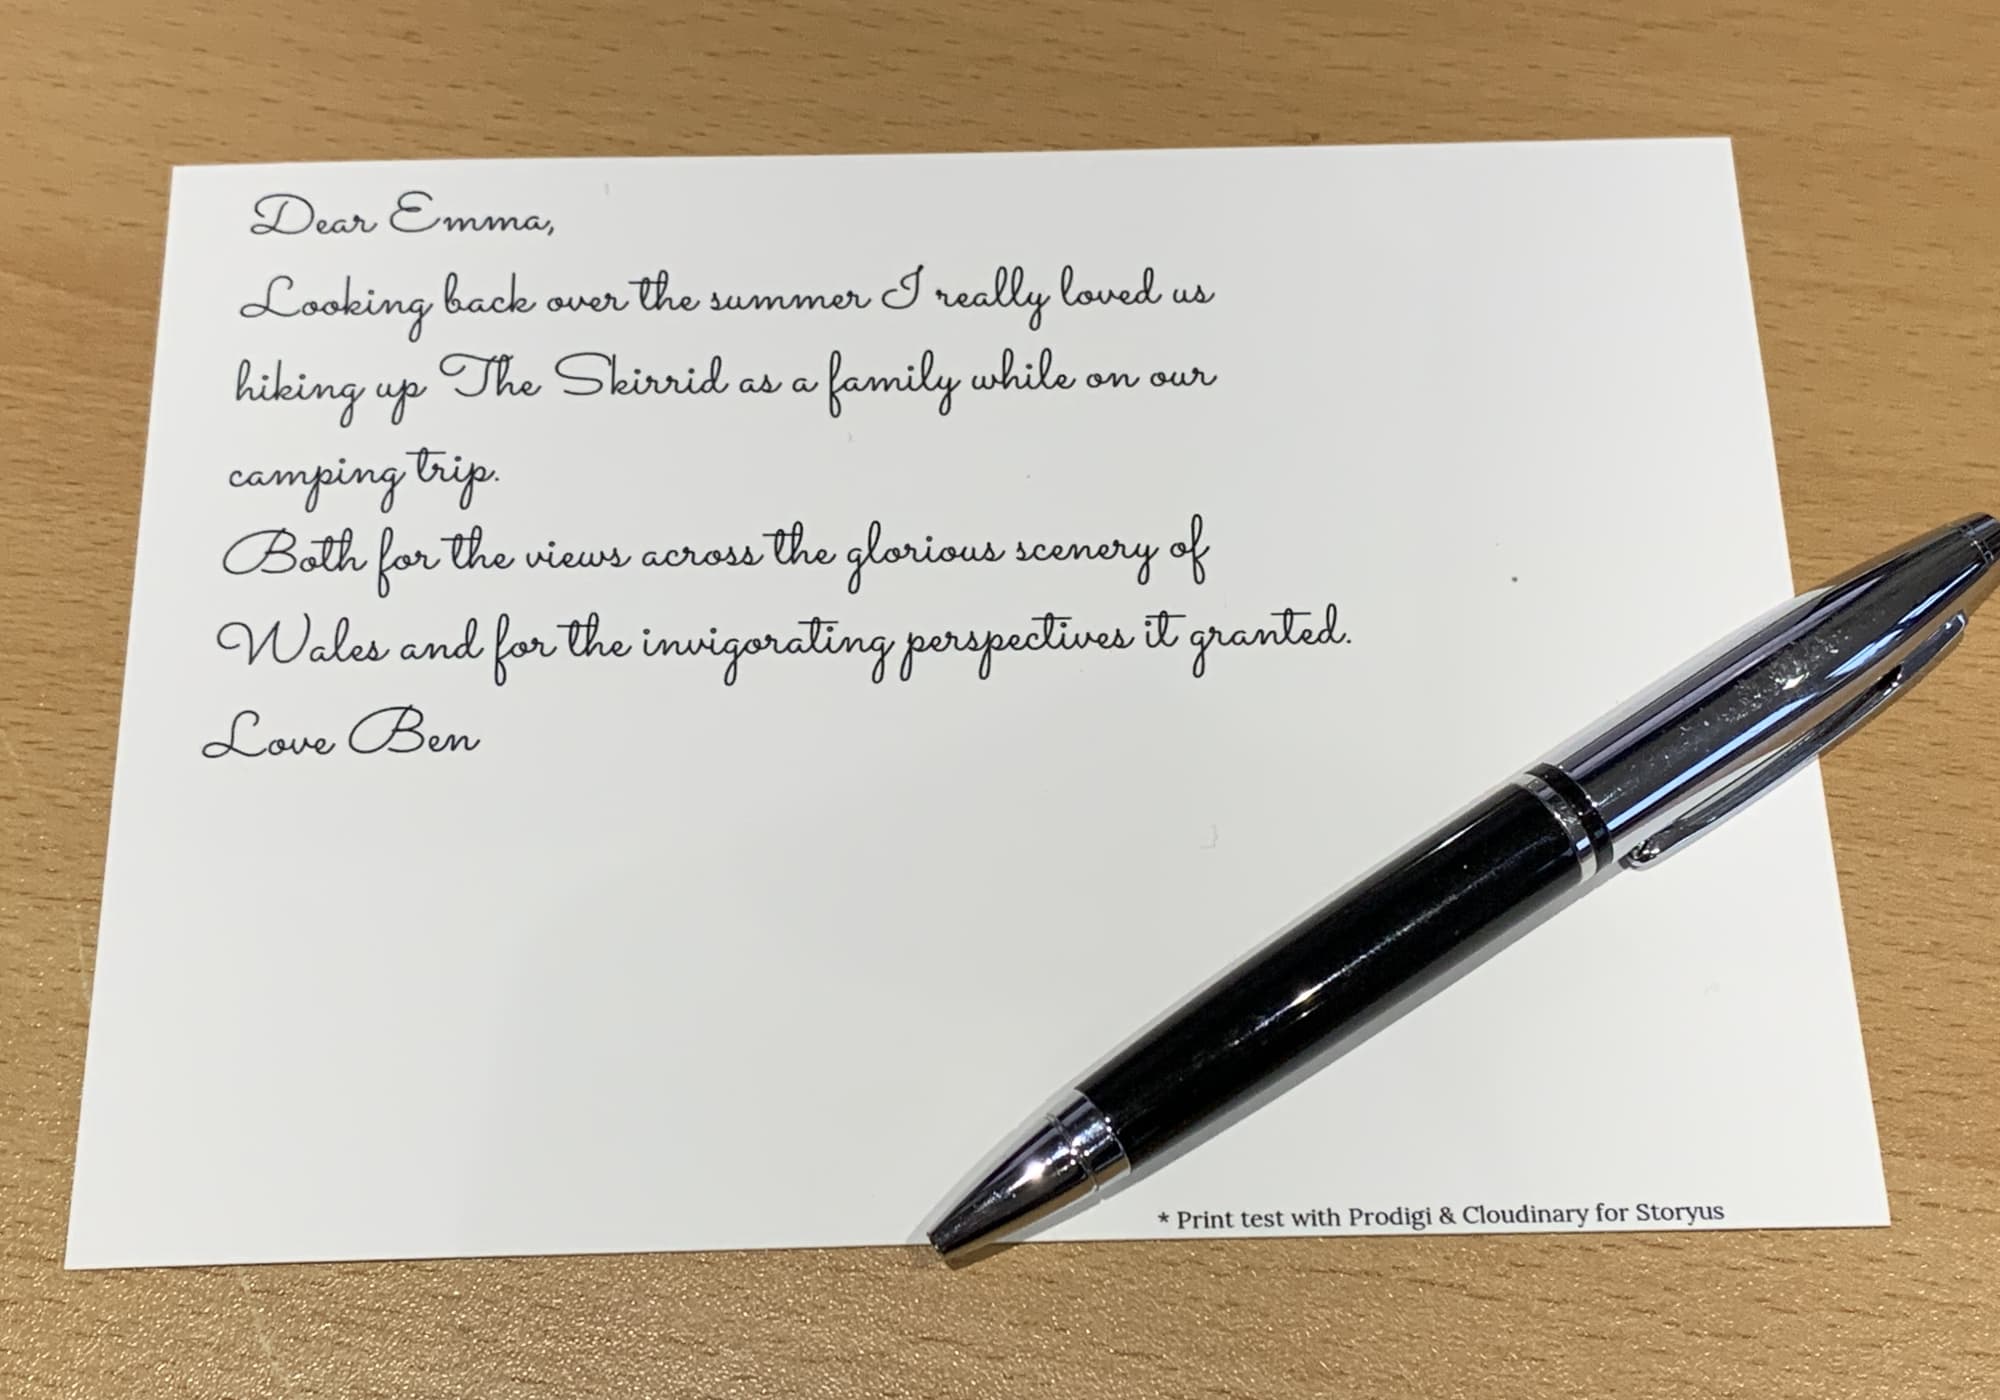 Dear Emma,
Looking back over the summer I really loved us
hiking up The Skirrid as a family while on our
camping trip.
Both for the views across the glorious scenery of
Wales and for the invigorating perspectives it granted.
Love Ben
* Print test with Prodigi & Cloudinary for Storyus